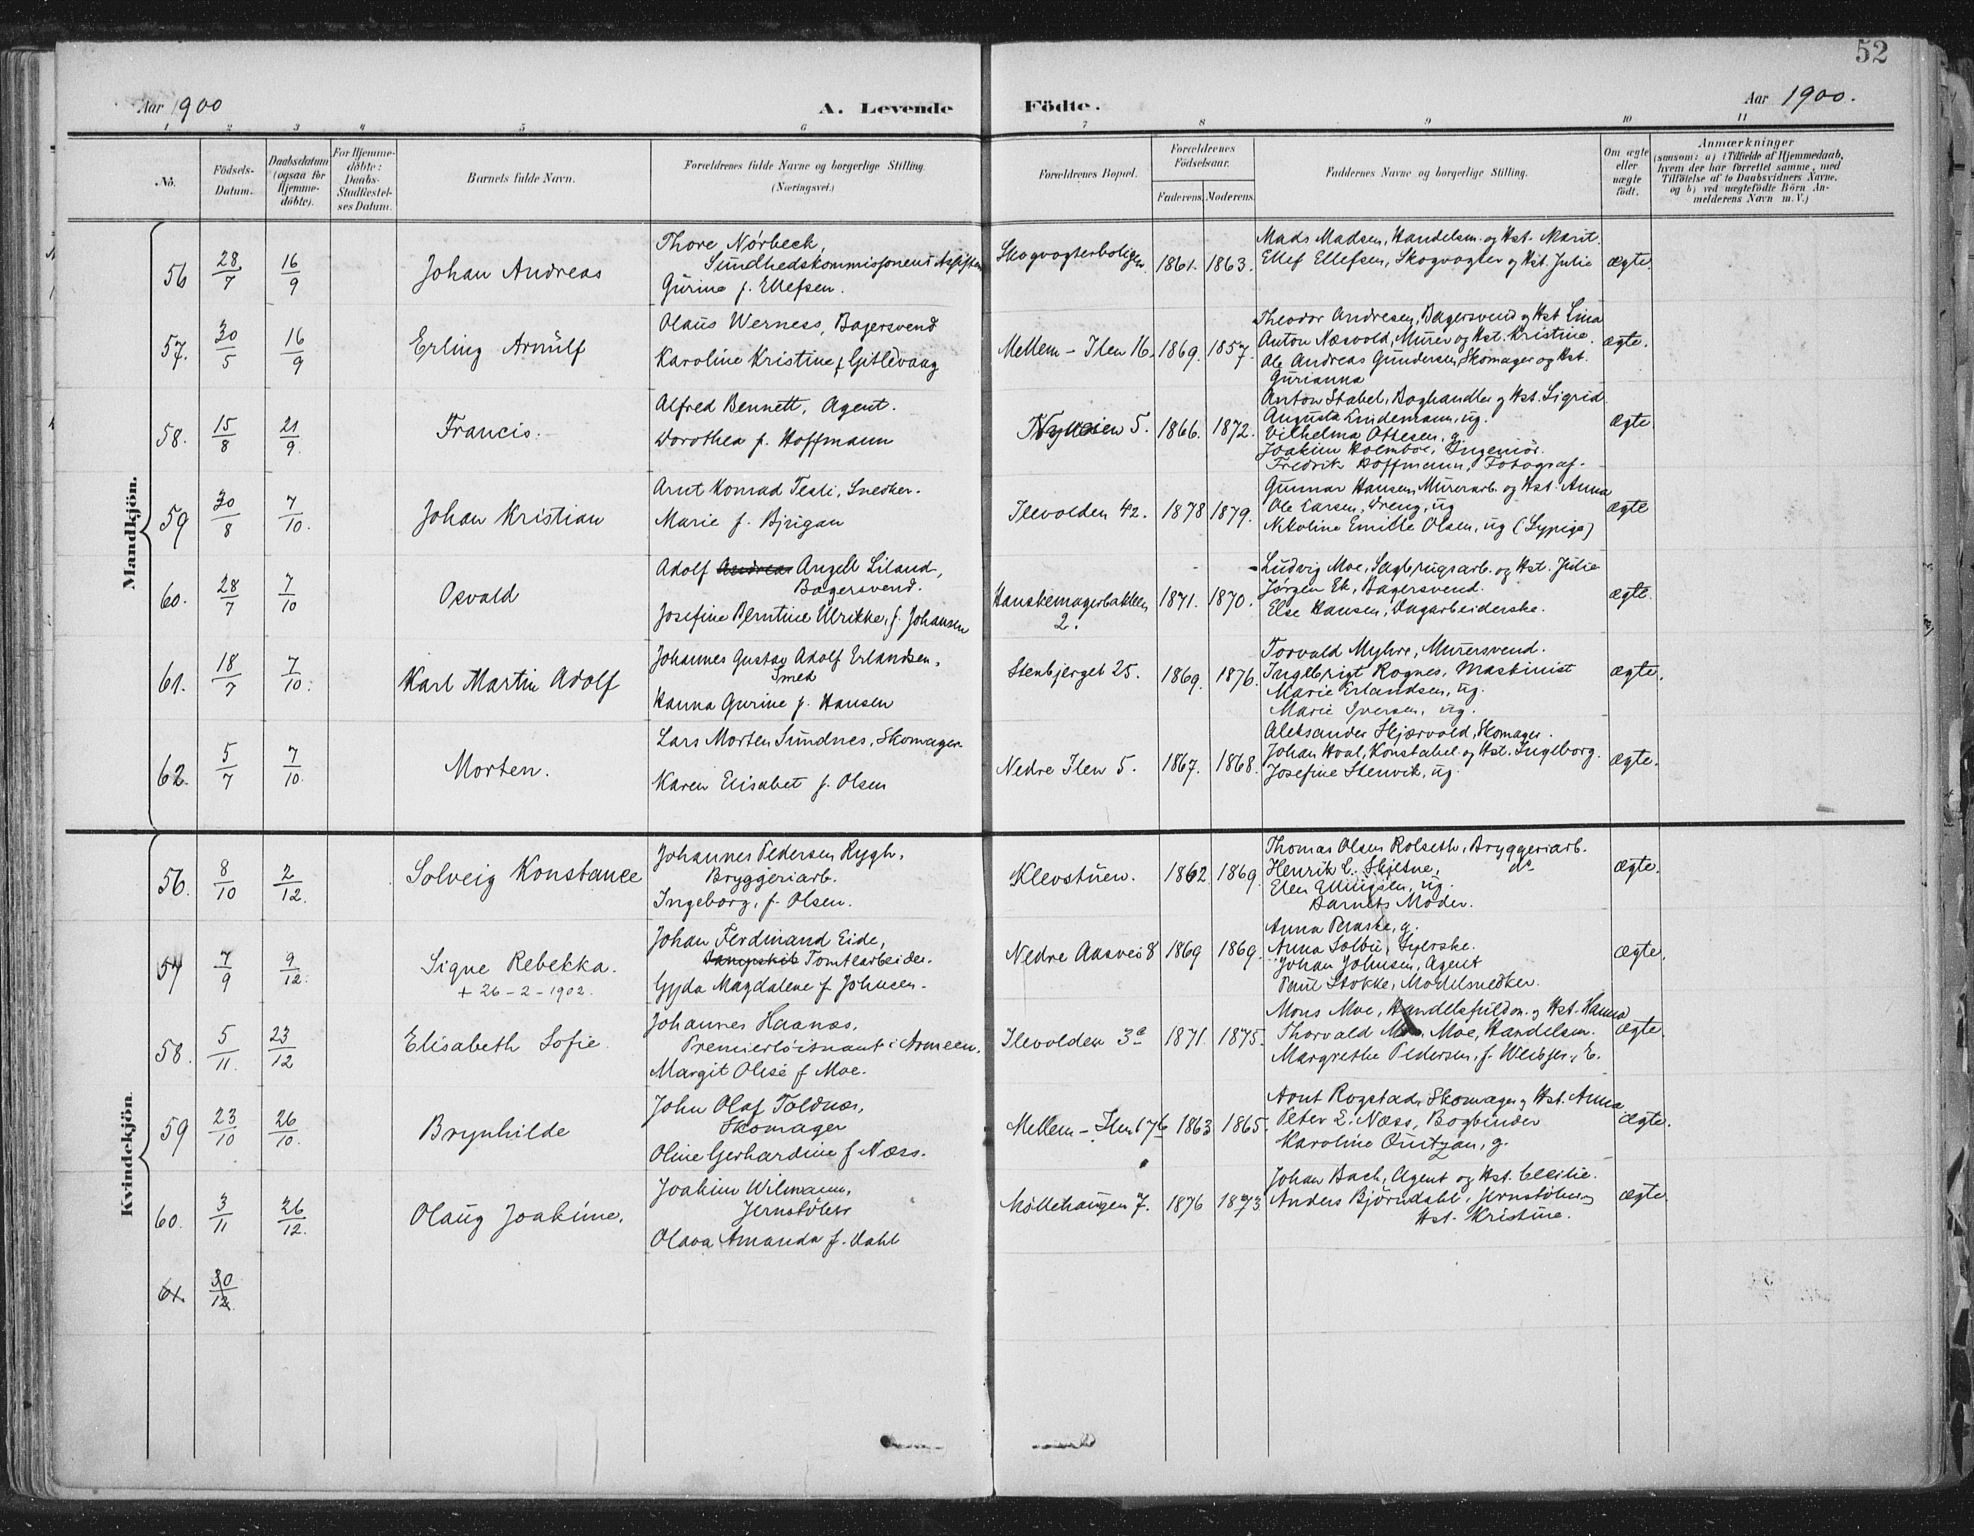 52
Aar 1900 A. Levende Födte. Aar 1900.
1 2 3 4 5 6 7 8 9 10 11
No.
Födsels-Datum.
Daabsdatum (ogsaa for Hjemme-döbte).
For Hjemme-döbte: Daabs-Stadfæstel-ses Datum.
Barnets fulde Navn.
Forældrenes fulde Navne og borgerlige Stilling.
(Næringsvei.)
Forældrenes Bopæl.
Forældrenes Födselsaar.
Faderens. Moderens.
Faddernes Navne og borgerlige Stilling.
Om ægte eller uægte födt.
Anmærkninger
(saasom: a) i Tilfælde af Hjemmedaab,
hvem der har forrettet samme, med
Tilföielse af to Daabsvidners Navne,
og b) ved uægtefödte Börn An-
melderens Navn m. V.)
Mandkjön.
56 28/7 16/9 Johan Andreas
Thore Nørbech,
Sundhedskommissionens
Gurine f. Ellefsen.
Skogvogterboligen 1861. 1863.
Mads Madsen, Handelsm. og Hst. Marit.
Ellef Ellefsen, Skogvogter og Hst. Julie
ægte.
57. 30/5 16/9 Erling Arnulf
Olaus Werness, Bagersvend
Karoline Kristine f. Gitlevaag
Mellem-Ilen 16. 1869. 1857.
Theodor Andresen, Bagersvend og Hst Lina
Anton Næsvold, Murer og Hst. Kristine
Ole Andreas Gundersen, Skomager og Hst.
Gurianna
ægte.
58. 15/8 21/9. Francis.
Alfred Bennett, Agent.
Dorothea f. Hoffmann
5. 1866. 1872.
Anton Stabel, Boghandler og Hst. Sigrid
Augusta Lindemann, ug.
Vilhelma Ottesen, g.
Joakim Holmboe, Ingeniör.
Fredrik Hoffmann, Fotograf.
ægte
59 30/8 7/10. Johan Kristian
Arnt Konrad Tesli, Snedker.
Marie f. Bjrigan
Ilevolden 42. 1878 1879.
Gunnar Hansen, Murerarb. og Hst. Anna
Ole Larsen, Dreng, ug
Nikoline Emilie Olsen, ug (Sypige)
ægte
60. 28/7 7/10 Osvald
Adolf Andreas Angell Liland,
Bagersvend.
Josefine Berntine Ulrikke, f. Johansen
Hanskemagerbakken
2.
1871. 1870.
Ludvig Moe, Sagbrugsarb. og Hst. Julie
Jørgen Ek, Bagersvend.
Else Hansen, Dagarbeiderske.
ægte.
61. 18/7 7/10. Karl Martin Adolf
Johannes Gustav Adolf Erlandsen,
Smed
Hanna Gurine f. Hansen
Stenbjerget 25. 1869. 1876.
Torvald Myhre, Murersvend.
Ingebrigt Rognes, Maskinist
Marie Erlandsen, ug.
Marie Iversen, ug.
ægte.
62. 5/7 7/10. Morten.
Lars Morten Sundnes, Skomager.
Karen Elisabet f. Olsen
Nedre Ilen 5. 1867. 1868.
Aleksander Hjærvold, Skomager.
Johan Hoal, Konstabel og Hst. Ingeborg.
Josefine Stenvik, ug.
ægte.
Kvindekjön.
56. 8/10 2/12. Solveig Konstance
Johannes Pedersen Rygh,
Bryggeriarb.
Ingeborg, f. Olsen.
Klevstuen. 1862. 1869.
Thomas Olsen Rolseth, Bryggeriarb.
Henrik L. Skjetne, do
Elen Ellingsen, ug.
Barnets Moder.
ægte.
57 7/9 9/12. Signe Rebekka.
+ 26-2-1902.
Johan Ferdinand Eide,
Tomtearbeider.
Gyda Magdalene f Johnsen.
Nedre Aasvei 8 1869 1869.
Anna Peraske, g.
Anna Solbu, Syerske.
Johan Johnsen, Agent
Paul Stokke, Modelsnedker.
ægte.
58. 5/11. 23/12 Elisabeth Sofie.
Johannes Haanæs,
Premierløitnant i Armeen.
Margit Olise f Moe.
Ilevolden 3a 1871. 1875.
Mons Moe, Handelsfuldm. og Hst. Hanna
Thorvald Moe, Handelsm.
Margrethe Pedersen, f. Weibye, E.
ægte.
59 23/10 26/10. Brynhilde
John Olaf Toldnæs,
Skomager
Oline Gerhardine f Næss.
Mellem-Ilen 17b 1863 1865.
Arnt Rogstad, Skomager og Hst. Anna
Peter L. Næss, Bogbinder
Karoline Quitzau, g.
ægte.
60. 3/11 26/12. Olaug Joakime.
Joakim Wilmann,
Jernstøber
Olava Amanda f. Dahl
Møllehaugen 7. 1876 1873
Johan Bach, Agent og Hst. Cecilie.
Anders Bjørndahl, Jernstøber og
Hst. Kristine.
ægte
61. 30/12.